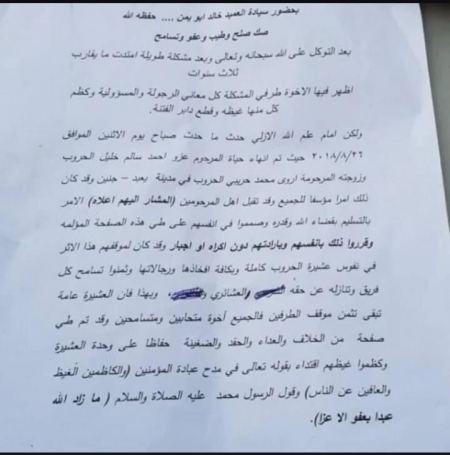 بحضور سيادة العميد خالد ابو يمن .... حفظه الله
صك صلح وطيب وعفو وتسامح
بعد التوكل على الله سبحانه وتعالى وبعد مشكلة طويلة امتدت ما يقارب
ثلاث سنوات
اظهر فيها الاخوة طرفي المشكلة كل معاني الرجولة والمسؤولية وكظم
كل منها غيظه وقطع دابر الفتنة.
ولكن امام علم الله الازلي حدث ما حدث صباح يوم الاثنين الموافق
٢٠١٨/٨/٢٦ حيث تم انهاء حياة المرحوم عزو احمد سالم خليل الحروب
وزوجته المرحومة اروى محمد حريبي الحروب في مدينة يعبد – جنين وقد كان
ذلك امرا مؤسفا للجميع وقد تقبل اهل المرحومين (المشار اليهم اعلاه) الامر
بالتسليم بقضاء الله وقدره وصمموا في انفسهم على طي هذه الصفحة المؤلمه
وقرروا ذلك بانفسهم وبارادتهم دون اكراه او اجبار وقد كان لموقفهم هذا الاثر
في نفوس عشيرة الحروب كاملة وبكافة افخاذها ورجالاتها وثمنوا تسامح كل
فريق وتنازله عن حقه العشائري ، وبهذا فان العشيرة عامة
تبقى تثمن موقف الطرفين فالجميع أخوة متحابين ومتسامحين وقد تم طي
صفحة من الخلاف والعداء والحقد والضغينة حفاظا على وحدة العشيرة
وكظموا غيظهم اقتداء بقوله تعالى في مدح عبادة المؤمنين (والكاظمين الغيظ
والعافين عن الناس) وقول الرسول محمد عليه الصلاة والسلام ( ما زاد الله
عبدا بعفو الا عزا).